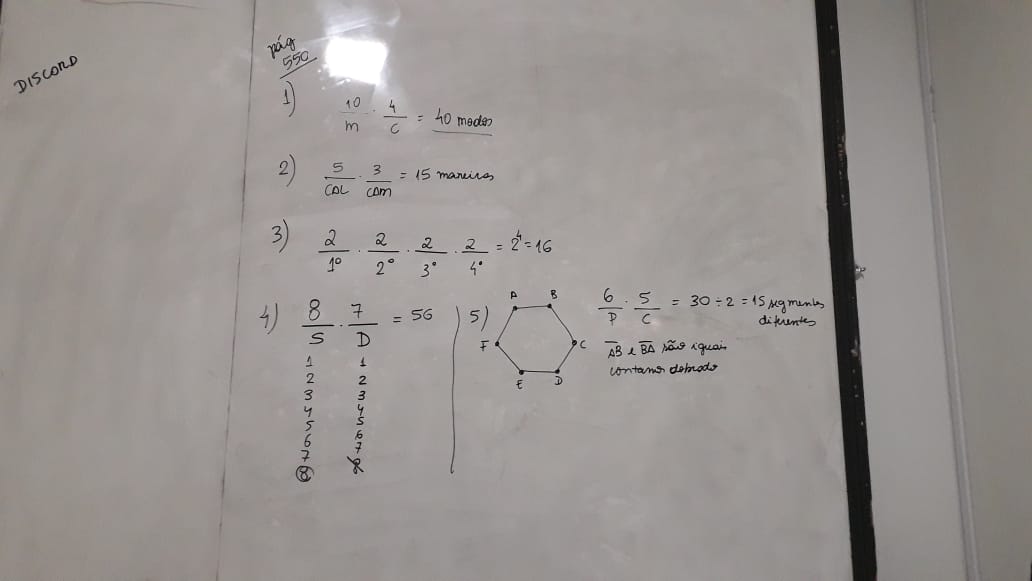 DISCORD
pág
550
1) 10/m · 4/c = 40 modos
2) 5/CAL · 3/CAM = 15 maneiras
3) 2/1º · 2/2º · 2/3º · 2/4º = 2⁴ = 16
4) 8/S · 7/D = 56
1 1
2 2
3 3
4 4
5 5
6 6
7 7
8 8
5) A B C D E F
6/P · 5/C = 30 ÷ 2 = 15 segmentos
diferentes
AB e BA são iguais
contamos dobrado